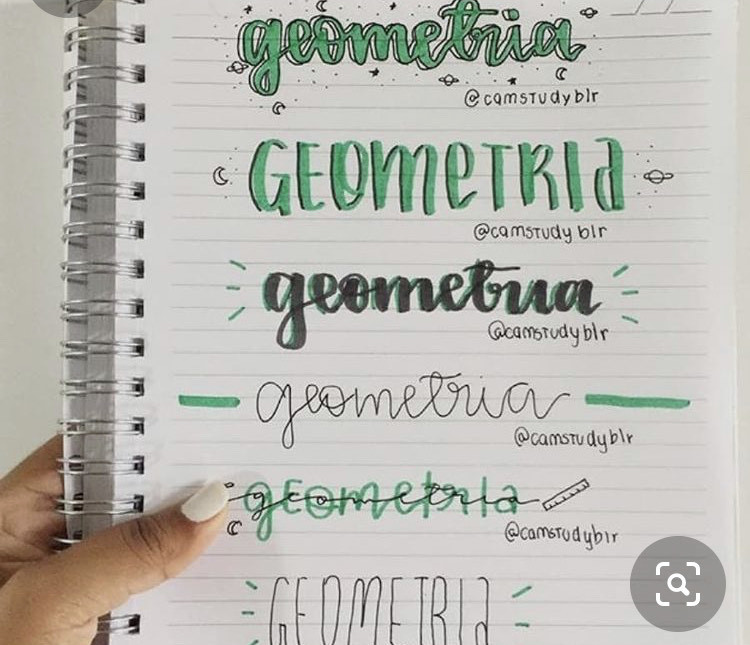 geometria
@camstudyblr
GEOMETRIA
@camstudyblr
geometria
@camstudyblr
geometria
@camstudyblr
geometria
@camstudyblr
GEOMETRIA